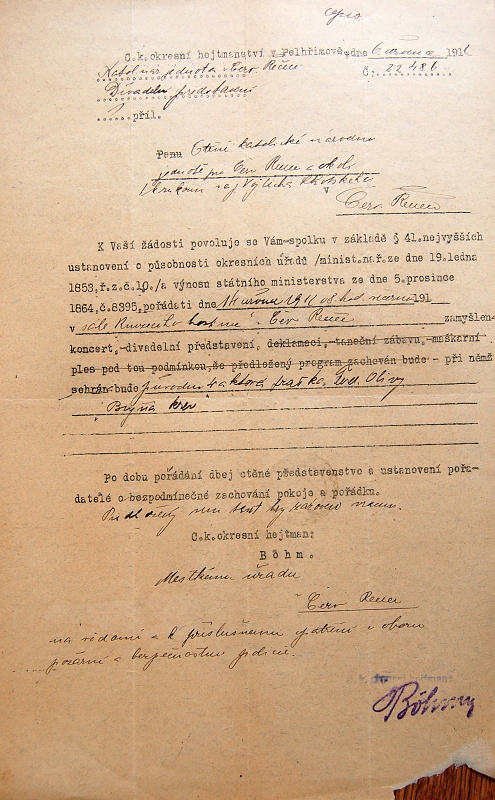 copia
C.k. okresní hejtmanství v Pelhřimově, dne 6. června 1911
Katol. nár. jednota v Čer. Řečici Č: 22486
Divadelní představení
příl.
Panu Ctěné katolické národní
jednotě pro Čer. Řečici a okolí
v
Čer. Řečici
K Vaší žádosti povoluje se Vám-spolku v základě § 41.nejvyšších
ustanovení o působnosti okresních úřadů /minist.nař.ze dne 19.ledna
1853,ř.z.č.10./a výnosu státního ministerstva ze dne 5.prosince
1864,č.8395,pořádati dne 11. června 1911 o 8 hod. večer 191
v sále hostinci v Čer. Řečici zamýšlen-
koncert,-divadelní představení, deklamaci,-taneční zábavu,-maškarní
ples pod tou podmínkou,že předložený program zachován bude - při němž
sehrán bude původní 4 aktová fraška, Fed. Olivy
"Bujná krev"
Po dobu pořádání dbej ctěné představenstvo a ustanovení pořa-
datelé o bezpodmínečné zachování pokoje a pořádku.
C.k.okresní hejtman:
Böhm.
Městskému úřadu
Čer. Řečici
na vědomí a k příslušnému opatření v oboru
požární a bezpečnostní policie.
C. k. okresní hejtmane
Böhm